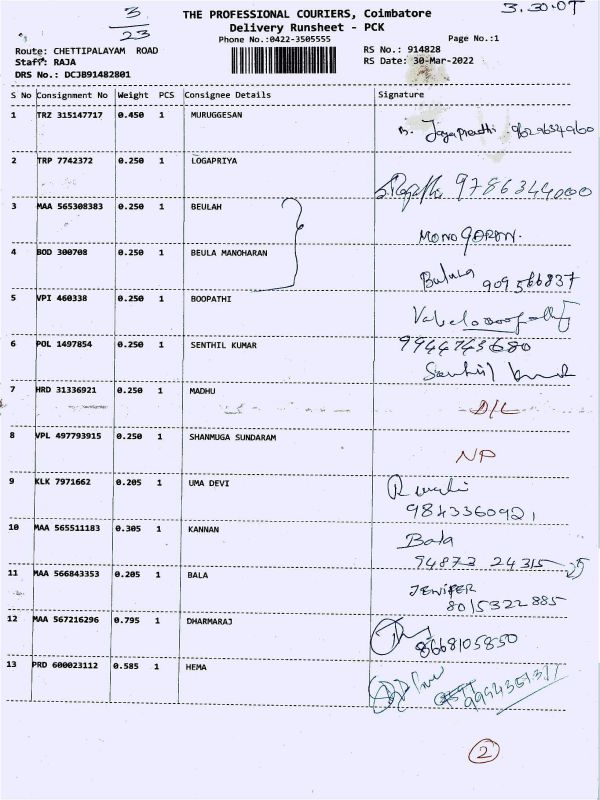 3
23
THE PROFESSIONAL COURIERS, Coimbatore
3.30.07
Delivery Runsheet - PCK
Phone No.:0422-3505555
Page No.:1
Route: CHETTIPALAYAM ROAD
RS No.: 914828
Staff: RAJA
RS Date: 30-Mar-2022
DRS No.: DCJB91482801
S No Consignment No Weight PCS Consignee Details Signature
1 TRZ 315147717 0.450 1 MURUGGESAN
2 TRP 7742372 0.250 1 LOGAPRIYA
9786344000
3 MAA 565308383 0.250 1 BEULAH
MONOGARAN.
4 BOD 300708 0.250 1 BEULA MANOHARAN
909566837
5 VPI 460338 0.250 1 BOOPATHI
6 POL 1497854 0.250 1 SENTHIL KUMAR 9944743680
Senthil
7 HRD 31336921 0.250 1 MADHU
D/L
8 VPL 497793915 0.250 1 SHANMUGA SUNDARAM
NP
9 KLK 7971662 0.205 1 UMA DEVI
9843360921
10 MAA 565511183 0.305 1 KANNAN
Bala
94873 24315
11 MAA 566843353 0.205 1 BALA
JENIFER
8015322885
12 MAA 567216296 0.795 1 DHARMARAJ
8668105850
13 PRD 600023112 0.585 1 HEMA
2